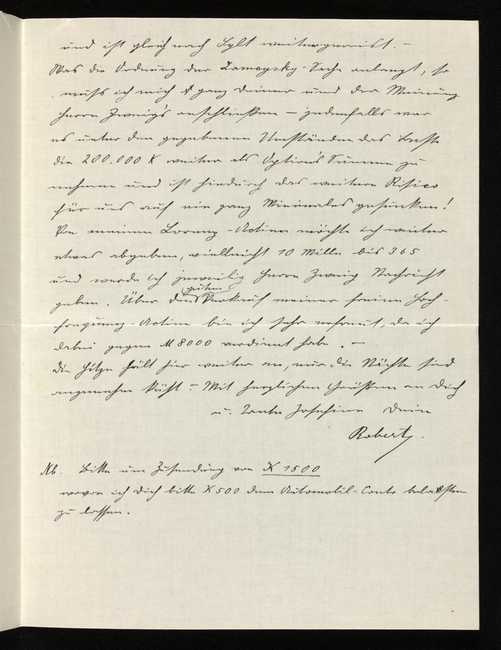 und ist gleich nach Sylt weitergereist. –
Was die Ordnung der Zamoysky-Sache anlangt, so
muß ich mich ganz Deiner und der Meinung
Herrn Zweig's anschließen – jedenfalls war
es unter den gegebenen Umständen das Beste
die 200.000 K weiter als Options Summe zu
nehmen und ist hiedurch das weitere Risico
für uns auf ein ganz Minimales gesunken!
Von meinen Lorenz-Actien möchte ich weiter
etwas abgeben, vielleicht 10 Mille bis 365
und werde ich jeweilig Herrn Zweig Nachricht
geben. Über den guten Verkauf meiner freien
Actien bin ich sehr erfreut, da ich
dabei gegen M 8000 verdient habe. –
Die Hitze hält hier weiter an, nur die Nächte sind
angenehm kühl – Mit herzlichen Grüßen an Dich
u. Tante Josefine Dein
Robert.
Nb. Bitte um Zusendung von K 1500
wovon ich Dich bitte K 500 dem Automobil-Conto belasten
zu lassen.